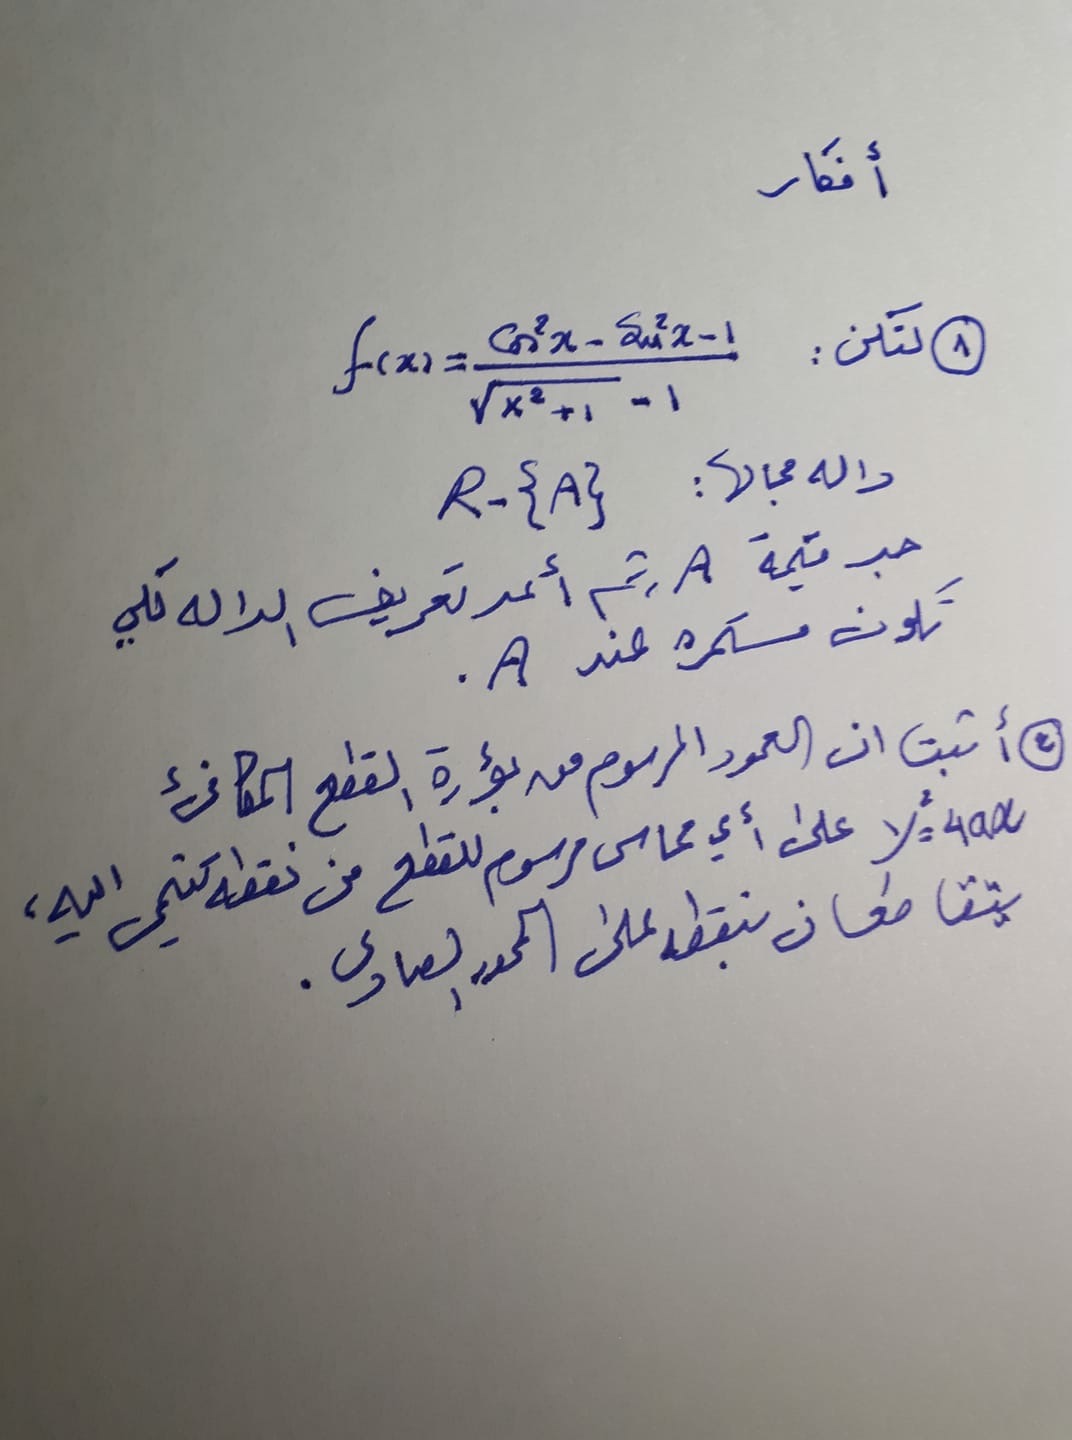 أفكار
① لتكن: f(x) = (cos²x - sin²x - 1) / (√(x²+1) - 1)
داله مجالها: R-{A}
جد قيمة A, ثم أعد تعريف الداله لكي
تكون مستمره عند A .
② أثبت ان العمود المرسوم من بؤرة القطع المكافئ
y²=4ax على أي مماس مرسوم للقطع من نقطه تنتمي اليه،
يتقاطعان بنقطه على المحور الصادي .